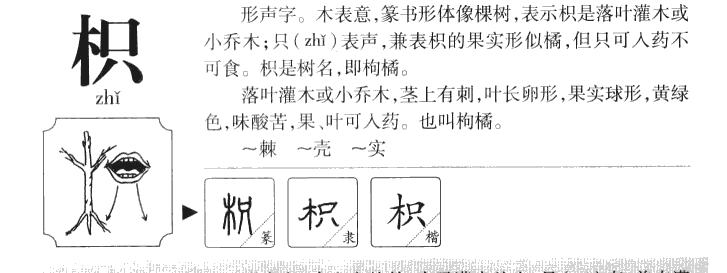 枳
zhǐ
形声字。木表意,篆书形体像棵树,表示枳是落叶灌木或
小乔木;只(zhǐ)表声,兼表枳的果实形似橘,但只可入药不
可食。枳是树名,即枸橘。
落叶灌木或小乔木,茎上有刺,叶长卵形,果实球形,黄绿
色,味酸苦,果、叶可入药。也叫枸橘。
~棘 ~壳 ~实
枳 篆 枳 隶 枳 楷